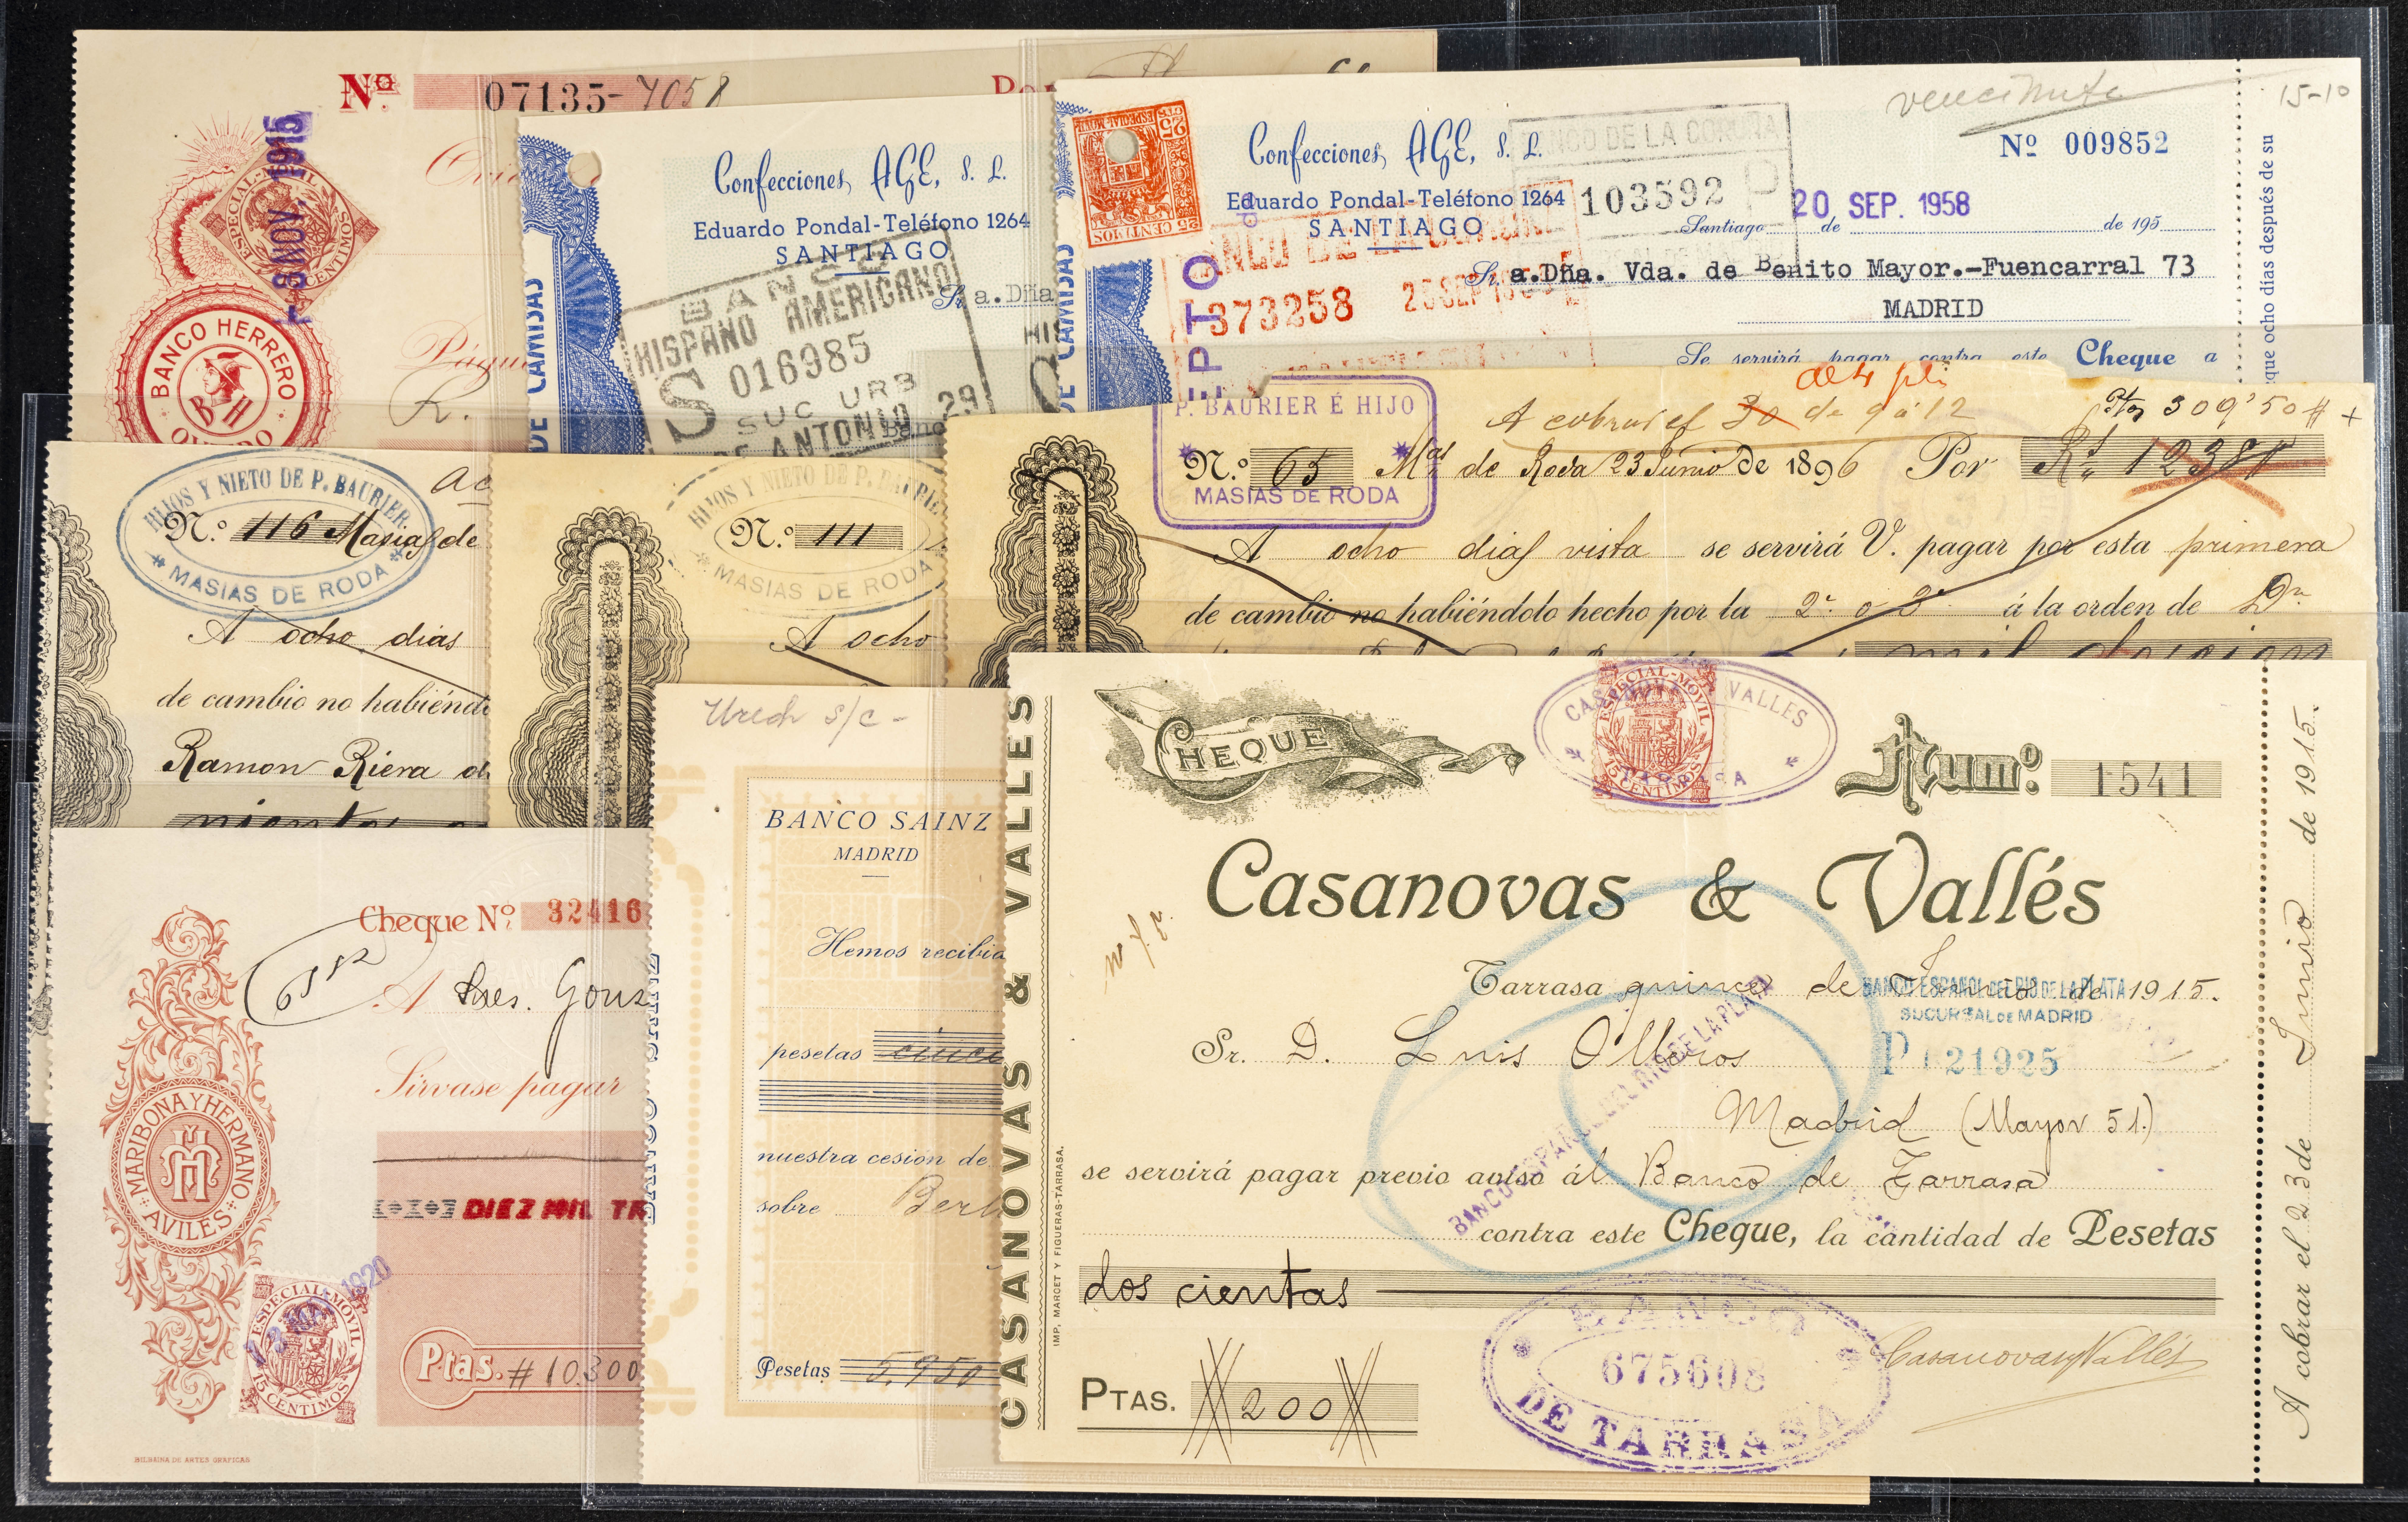 Nº 07135-7058
8 NOV. 1915
ESPECIAL-MOVIL
CENTIMOS
BANCO HERRERO
BH
OVIEDO
R.
Confecciones, AGE, S. L.
Eduardo Pondal-Teléfono 1264
SANTIAGO
DE CAMISAS
BANCO
HISPANO AMERICANO
S 016985
SUC URB
ANTONIO 29
Sr. a. Dña
Banco
ESPECIAL MOVIL
25 CTS
25 CENTIMOS
Confecciones, AGE, S. L.
Eduardo Pondal-Teléfono 1264
SANTIAGO
DE CAMISAS
BANCO DE LA CORUÑA
103592 P
15-10
Nº 009852
Santiago de 20 SEP. 1958 de 195
BANCO DE LA CORUÑA
373258
Sr. a.Dña. Vda. de Benito Mayor.-Fuencarral 73
MADRID
Se servirá pagar contra este Cheque a
que ocho días después de su
HIJOS Y NIETO DE P. BAURIER
N.º 116 Masias de
MASIAS DE RODA
A ocho dias
de cambio no habiéndo
Ramon Riera
HIJOS Y NIETO DE P. BAURIER
N.º 111
MASIAS DE RODA
A ocho
P. BAURIER É HIJO
A cobrar el 30 de 9 a 12
Ptas 309'50 #
N.º 65 Mas de Roda 23 Junio de 1896 Por Rs 1238#
MASIAS DE RODA
A ocho dias vista se servirá V. pagar por esta primera
de cambio no habiéndolo hecho por la 2ª o 3ª á la orden de Dn
mil doscien
Cheque Nº 32416
A Sres. Gonz
Sírvase pagar
MARIBONA Y HERMANO
AVILES
DIEZ MIL TR
1920
ESPECIAL-MOVIL
15 CENTIMOS
Ptas. # 10.300
BILBAINA DE ARTES GRAFICAS
BANCO SAINZ
BANCO SAINZ
MADRID
Hemos recibido
pesetas cinco
nuestra cesión de
sobre Berl
Pesetas 5,950
CASANOVAS & VALLES
IMP. MARCET Y FIGUERAS-TARRASA.
CHEQUE
CASANOVAS Y VALLES
TARRASA
ESPECIAL-MOVIL
15 CENTIMOS
Num.º 1541
Casanovas & Vallés
Tarrasa quince de Junio de 1915.
BANCO ESPAÑOL DEL RIO DE LA PLATA
SUCURSAL DE MADRID
P 121925
Sr. D. Luis Olleros
Madrid (Mayor 51.)
BANCO ESPAÑOL DEL RIO DE LA PLATA
se servirá pagar previo aviso ál Banco de Tarrasa
contra este Cheque, la cantidad de Pesetas
dos cientas
PTAS. 200
BANCO
675608
DE TARRASA
Casanovas y Vallés
A cobrar el 23 de Junio de 1915.